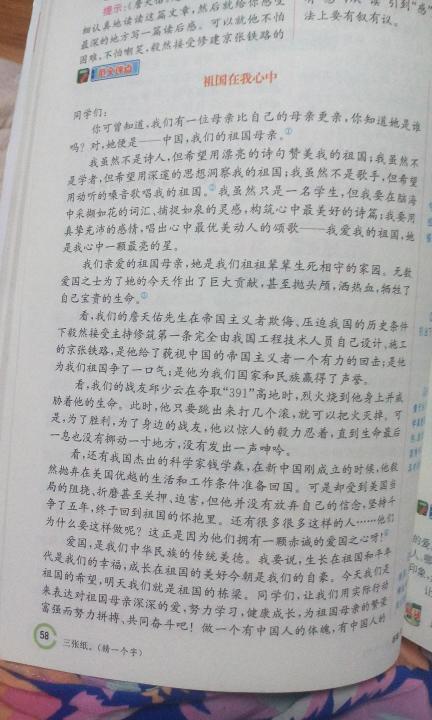 提示:(詹天佑
细认真地读读这篇文章,然后就给你感受
最深的地方写一篇读后感。可以就他不怕
困难,不怕嘲笑,毅然接受修建京张铁路的
引到“感”
法上要有叙有议。
范文亮点
祖国在我心中
同学们:
你可曾知道,我们有一位母亲比自己的母亲更亲,你知道她是谁
吗?对,她便是——中国,我们的祖国母亲。①
我虽然不是诗人,但希望用漂亮的诗句赞美我的祖国;我虽然不
是学者,但希望用深邃的思想洞察我的祖国;我虽然不是歌手,但希望
用动听的嗓音歌唱我的祖国。②我虽然只是一名学生,但我要在脑海
中采撷如花的词汇、捕捉如泉的灵感,构筑心中最美好的诗篇;我要用
真挚充沛的感情,唱出心中最优美动人的颂歌——我爱我的祖国,她
是我心中一颗最亮的星。
我们亲爱的祖国母亲,她是我们祖祖辈辈生死相守的家园。无数
爱国之士为了她的今天作出了巨大贡献,甚至抛头颅,洒热血,牺牲了
自己宝贵的生命。③
看,我们的詹天佑先生在帝国主义者欺侮、压迫我国的历史条件
下毅然接受主持修筑第一条完全由我国工程技术人员自己设计、施工
的京张铁路,是他给了藐视中国的帝国主义者一个有力的回击;是他
为我们祖国争了一口气;是他为我们国家和民族赢得了声誉。
看,我们的战友邱少云在夺取“391”高地时,烈火烧到他身上并威
胁着他的生命。此时,他只要跳出来打几个滚,就可以把火灭掉。可
是,为了胜利,为了身边的战友,他以惊人的毅力忍着,直到生命最后
一息也没有挪动一寸地方,没有发出一声呻吟。
看,还有我国杰出的科学家钱学森,在新中国刚成立的时候,他毅
然抛弃在美国优越的生活和工作条件准备回国。可是却受到美国当
局的阻挠、折磨甚至关押、迫害,但他并没有放弃自己的信念,坚持斗
争了五年,终于回到祖国的怀抱里。还有很多很多这样的人……他们
为什么要这样做呢?这正是因为他们拥有一颗赤诚的爱国之心呀!④
爱国,是我们中华民族的传统美德。我要说,生长在祖国和平年
代是我们的幸福,成长在祖国的美好今朝是我们的自豪。今天我们是
祖国的希望,明天我们就是祖国的栋梁。同学们,让我们用实际行动
来表达对祖国母亲深深的爱,努力学习,健康成长,为祖国母亲的繁荣
富强而努力拼搏、共同奋斗吧!做一个有中国人的体魄,有中国人的
58
三张纸。(猜一个字)